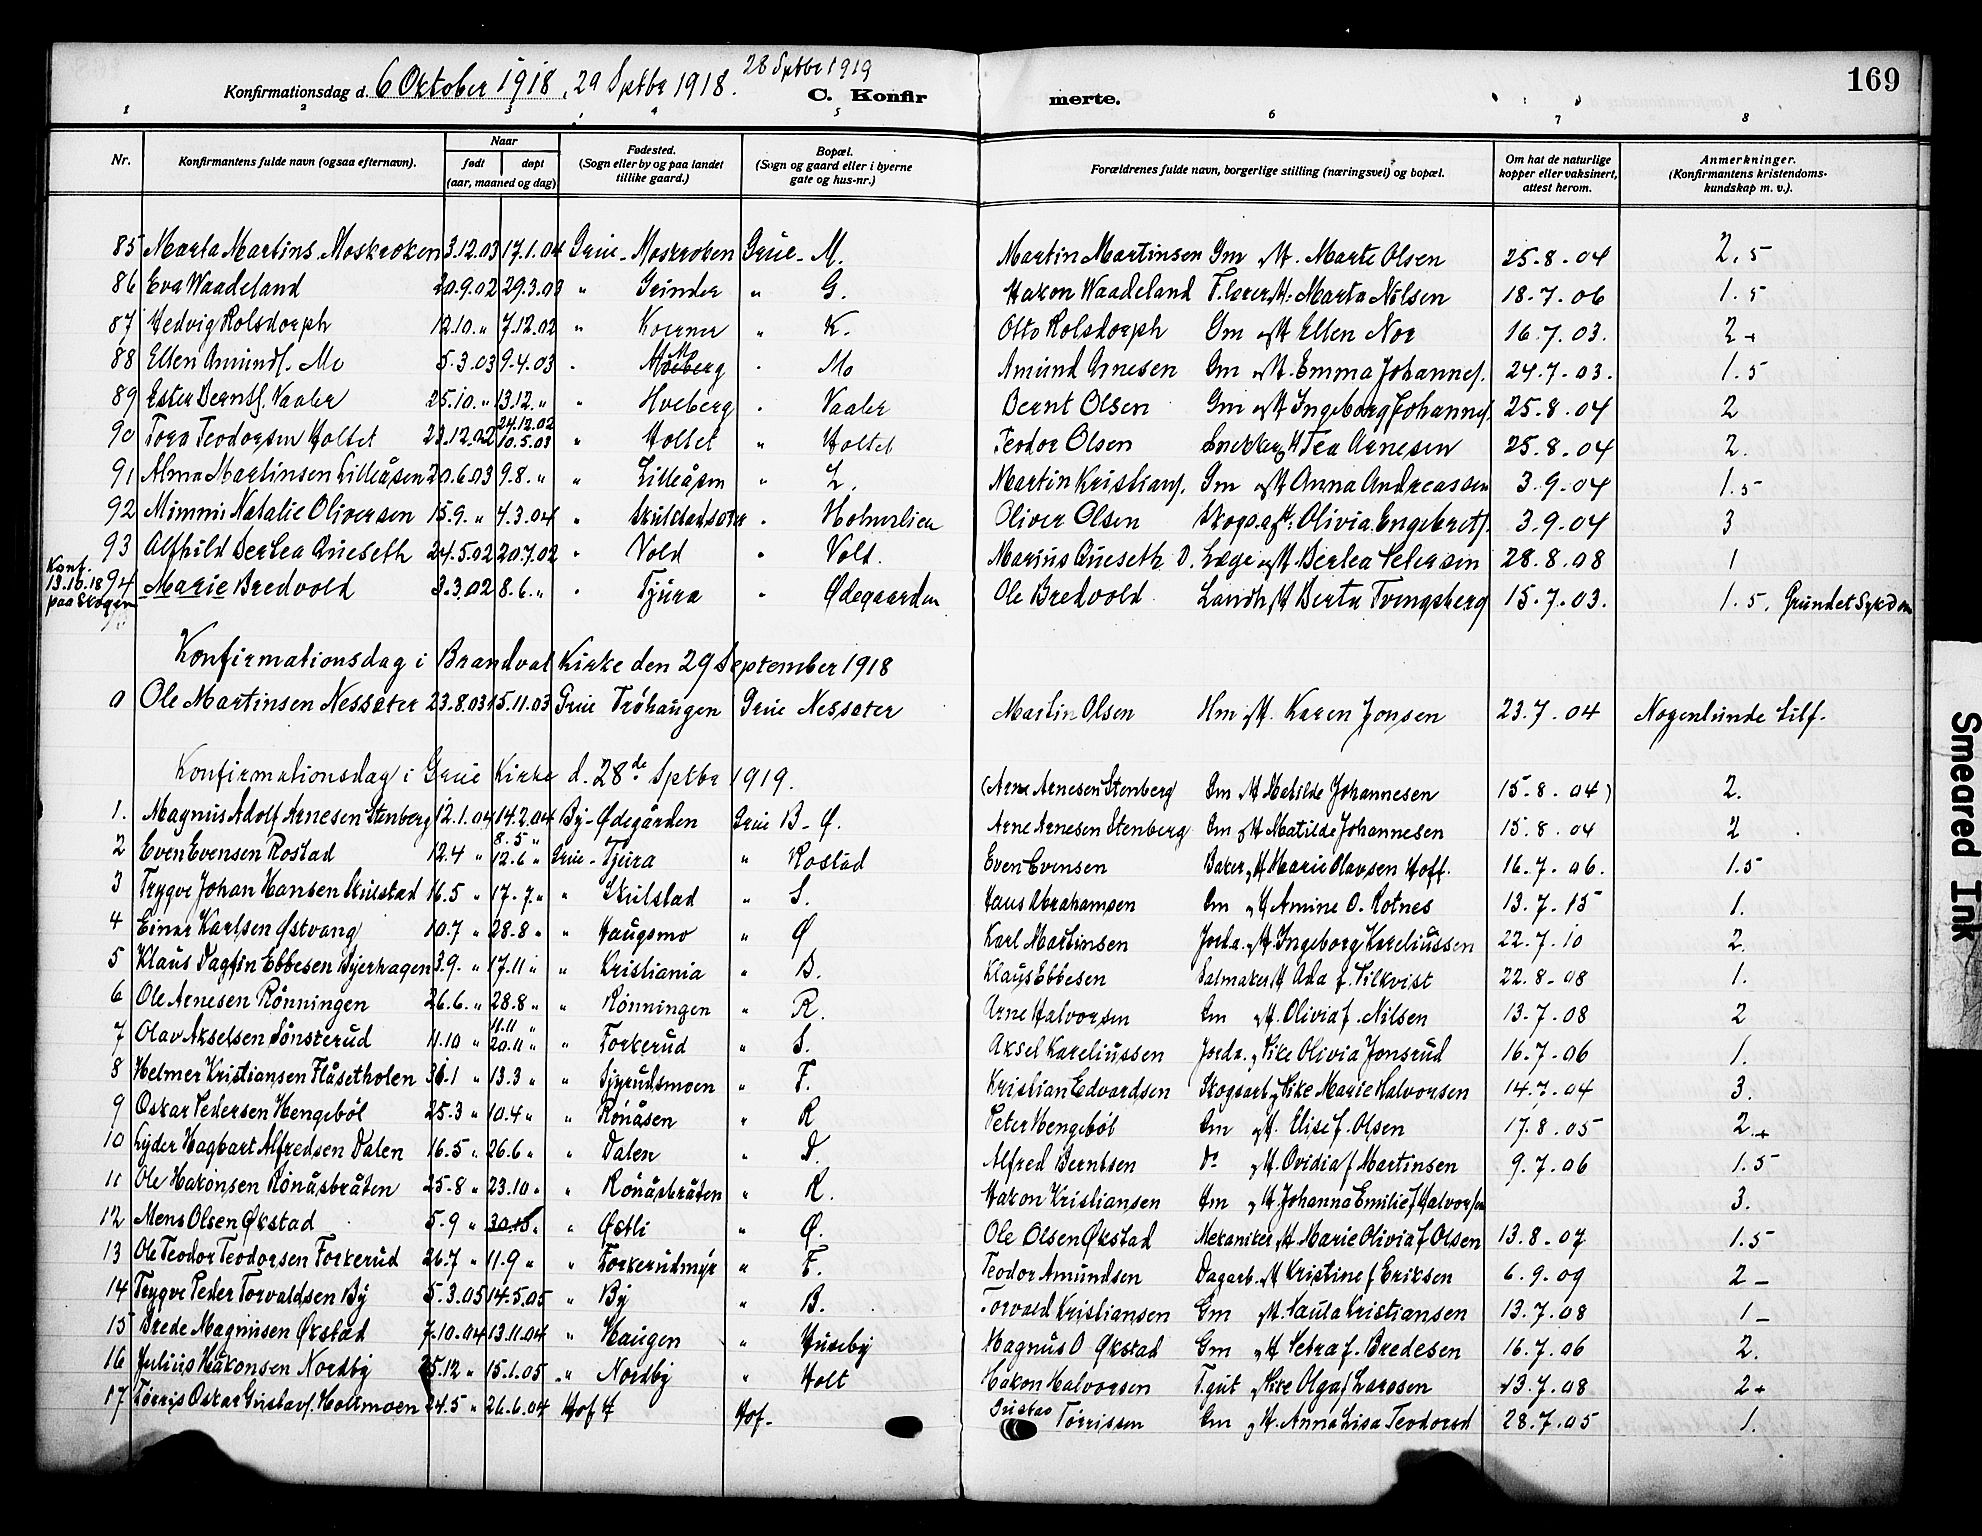 Konfirmationsdag d. 6 Oktober 1918, 29 Sptbr 1918. 28 Sptbr 1919
C. Konfirmerte. 169
1 2 3 4 5 6 7 8
Nr. Konfirmantens fulde navn (ogsaa efternavn). Naar født døpt (aar, maaned og dag) Fødested. (Sogn eller by og paa landet tillike gaard.) Bopæl. (Sogn og gaard eller i byerne gate og hus-nr.) Forældrenes fulde navn, borgerlige stilling (næringsvei) og bopæl. Om hat de naturlige kopper eller vaksinert, attest herom. Anmerkninger. (Konfirmantens kristendoms-kundskap m. v.).
85 Marta Martins. Moskroken 3.12.03 17.1.04 Grue - Moskroken Grue - M. Martin Martinsen Gm og H. Marte Olsen 25.8.04 2.5
86 Eva Waadeland 20.9.02 29.3.03 " Grinder " G. Hakon Waadeland H. Marta Nilsen 18.7.06 1.5
87 Hedvig Rolsdorph 12.10. " 7.12.02 " Koerner " K. Otto Rolsdorph Gm og H Ellen Nor 16.7.03. 2+
88 Ellen Amundf. Mo 5.3.03 9.4.03 " Mo " Mo Amund Arnesen Gm og H. Emma Johannef. 24.7.03. 1.5
89 Ester Berntf. Vaaler 25.10. " 13.12. " " Hveberg " Vaaler Bernt Olsen Gm og H Ingeborg Johannef. 25.8.04 2
90 Tora Teodorsen Holtet 23.12.02 24.12.02 10.5.03 " Holtet " Holtet Teodor Olsen Snekker og H Tea Arnesen 25.8.04 2.
91 Alma Martinsen Lilleåsen 20.6.03 9.8. " " Lilleåsen " L. Martin Kristianf. Gm og H Anna Andreassen 3.9.04 1.5
92 Mimmi Natalie Oliversen 15.9. " 4.3.04 " Skulstadsæter " Holmlien Oliver Olsen Skogsa. og H. Olivia Engebretf. 3.9.04 3
93 Alfhild Berlea Queseth 24.5.02 20.7.02 " Vold " Vold. Marius Queseth D. Læge og H Berlea Petersen 28.8.08 1
Konf. 13.10.18 paa Skogen 94 Marie Bredvold 3.3.02 8.6. " " Tjura " Ødegaarden Ole Bredvold Landh. og H Berta Tvengsberg 15.7.03. 1.5. Grundet Sykdom
Konfirmationsdag i Brandval Kirke den 29 September 1918
0 Ole Martinsen Nessæter 23.8.03 15.11.03 Grue Frøhaugen Grue Nessæter Martin Olsen Hm og H. Karen Jonsen 23.7.04 Nogenlunde tilf.
Konfirmationsdag i Grue Kirke d. 28de Sptbr 1919.
(Arne Arnesen Stenberg Gm H Matilde Johannesen 15.8.04) 2.
1. Magnus Adolf Arnesen Stenberg 12.1.04 14.2.04 By - Ødegården Grue B - Ø. Arne Arnesen Stenberg Gm og H Matilde Johannesen 15.8.04 2
2 Even Evensen Rostad 12.4 " 8.5 " 12.6 " Grue - Tjura " Rostad Even Evensen Baker, og H Marie Olavsen Hoff. 16.7.06. 1.5
3 Trygve Johan Hansen Skulstad 16.5 " 17.7. " " Skulstad " S. Hans Abrahamsen Gm og H Amine O. Rotnes 13.7.15 1.
4 Einar Karlsen Østvang 10.7 " 28.8 " " Haugsmo " Ø Karl Martinsen Jorda. og H Ingeborg Kareliussen 22.7.10 2.
5 Klaus Dagfin Ebbesen Byerhagen 3.9. " 17.11 " " Kristiania " B. Klaus Ebbesen Salmaker H Ada f. Silkvist 22.8.08 1.
6 Ole Arnesen Rønningen 26.6. " 28.8 " " Rønningen " R. Arne Halvorsen Gm og H. Olivia f. Nilsen 13.7.08 2
7 Olav Akselsen Sønsterud 11.10 " 11.11 " 20.11 " " Forkerud " S. Aksel Kareliussen Jorda. og Pike Olivia Jonsrud 16.7.06 1.
8 Helmer Kristiansen Flåsetholen 31.1 " 13.3 " " Tjurudsmoen " F. Kristian Edvardsen Skogsarb. og Pike Marie Halvorsen 14.7.04 3.
9 Oskar Pedersen Hengebøl 25.3 " 10.4 " " Rønåsen " R Peter Hengebøl Gm og H. Elise f. Olsen 17.8.05 2.+
10 Lyder Hagbart Alfredsen Dalen 16.5 " 26.6 " " Dalen " D. Alfred Berntsen Do og H. Ovidia f Martinsen 9.7.06 1.5
11 Ole Hakonsen Rønåsbråten 25.8 " 23.10 " " Rønåsbråten " R. Hakon Kristiansen Hm og H. Johanna Emilie f Halvorsen 3.
12 Mens Olsen Økstad 5.9 " 30.10 " " Østli " Ø. Ole Olsen Økstad Mekaniker og H Marie Olivia f Olsen 13.8.07 1.5
13 Ole Teodor Teodorsen Forkerud 26.7 " 11.9 " " Forkerudmyr " F. Teodor Amundsen Dagarb. og H Kristine f Eriksen 6.9.09 2 -
14 Trygve Peder Torvaldsen By 5.3.05 14.5.05 " By " B. Torvald Kristiansen Gm og H. Paula Kristiansen 13.7.08 1 -
15 Brede Magnusen Økstad 7.10.04 13.11.04 " Haugen " Huseby Magnus O Økstad Gm og H Petra f. Bredesen 16.7.06 2.
16 Julius Håkonsen Nordby 25.12 " 15.1.05 " Nordby " Holt Håkon Halvorsen T.gut og Pike Olga f Larssen 13.7.08 2+
17 Tørris Oskar Gustavf. Holtmoen 24.5 " 26.6.04 Hof H Hof - Gustav Tørrissen Gm og H. Anna Lisa Teodorsd 28.7.05 1.
Smeared Ink